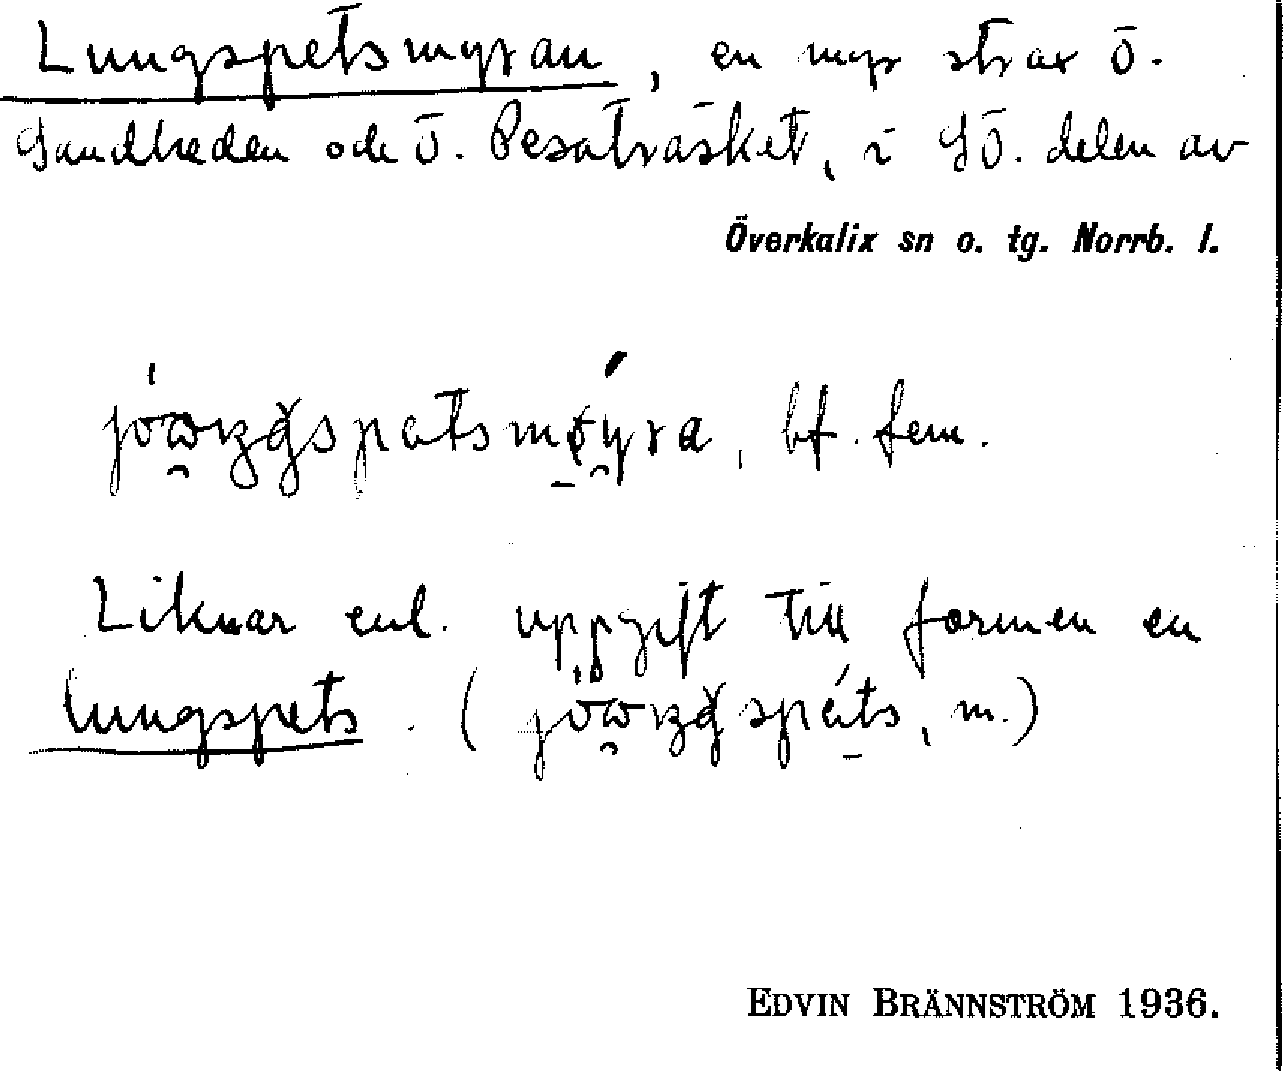 Lungspetsmyran, en myr strax ö.
Sandheden och ö. Pesaträsket, i SÖ. delen av
Överkalix sn o. tg. Norrb. l.
bf. fem.
Liknar enl. uppgift till formen en
lungspets. ( m.)
EDVIN BRÄNNSTRÖM 1936.